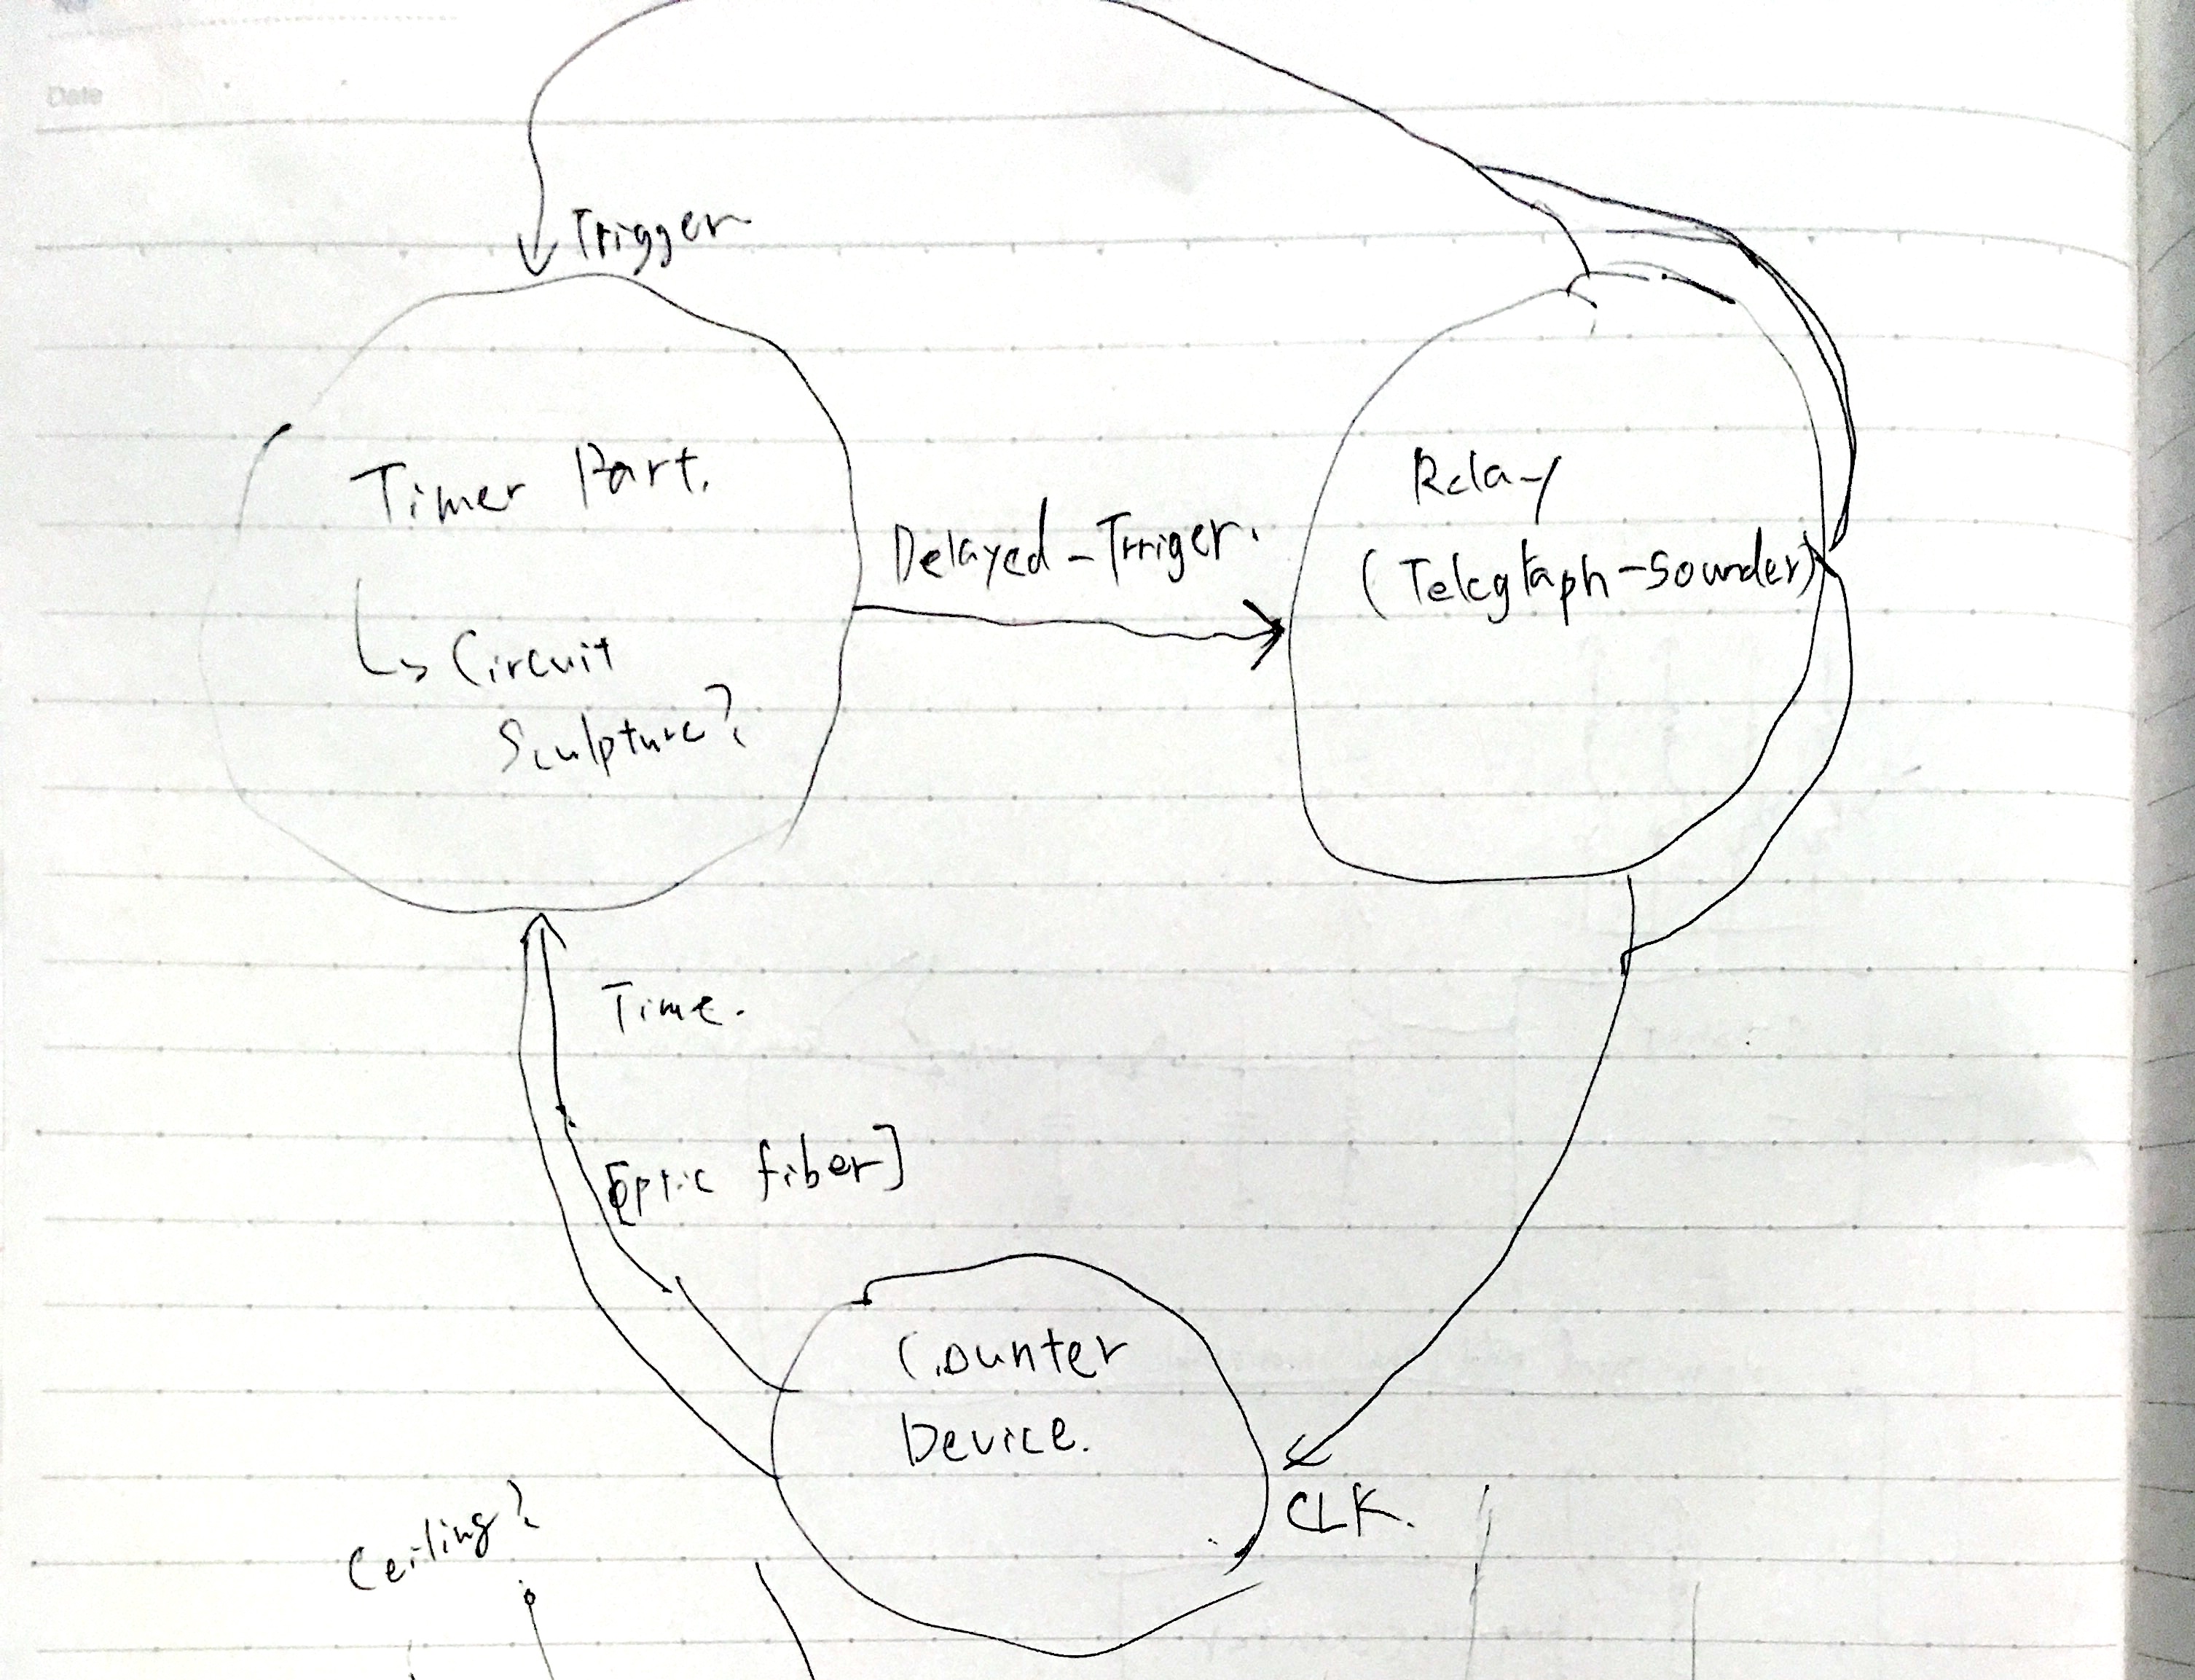 Date
Trigger
Timer Part.
↳ Circuit
Sculpture?
Delayed-Trriger.
Relay
(Telegraph-Sounder)
Time.
[Optic fiber]
Counter
Device.
CLK.
Ceiling?